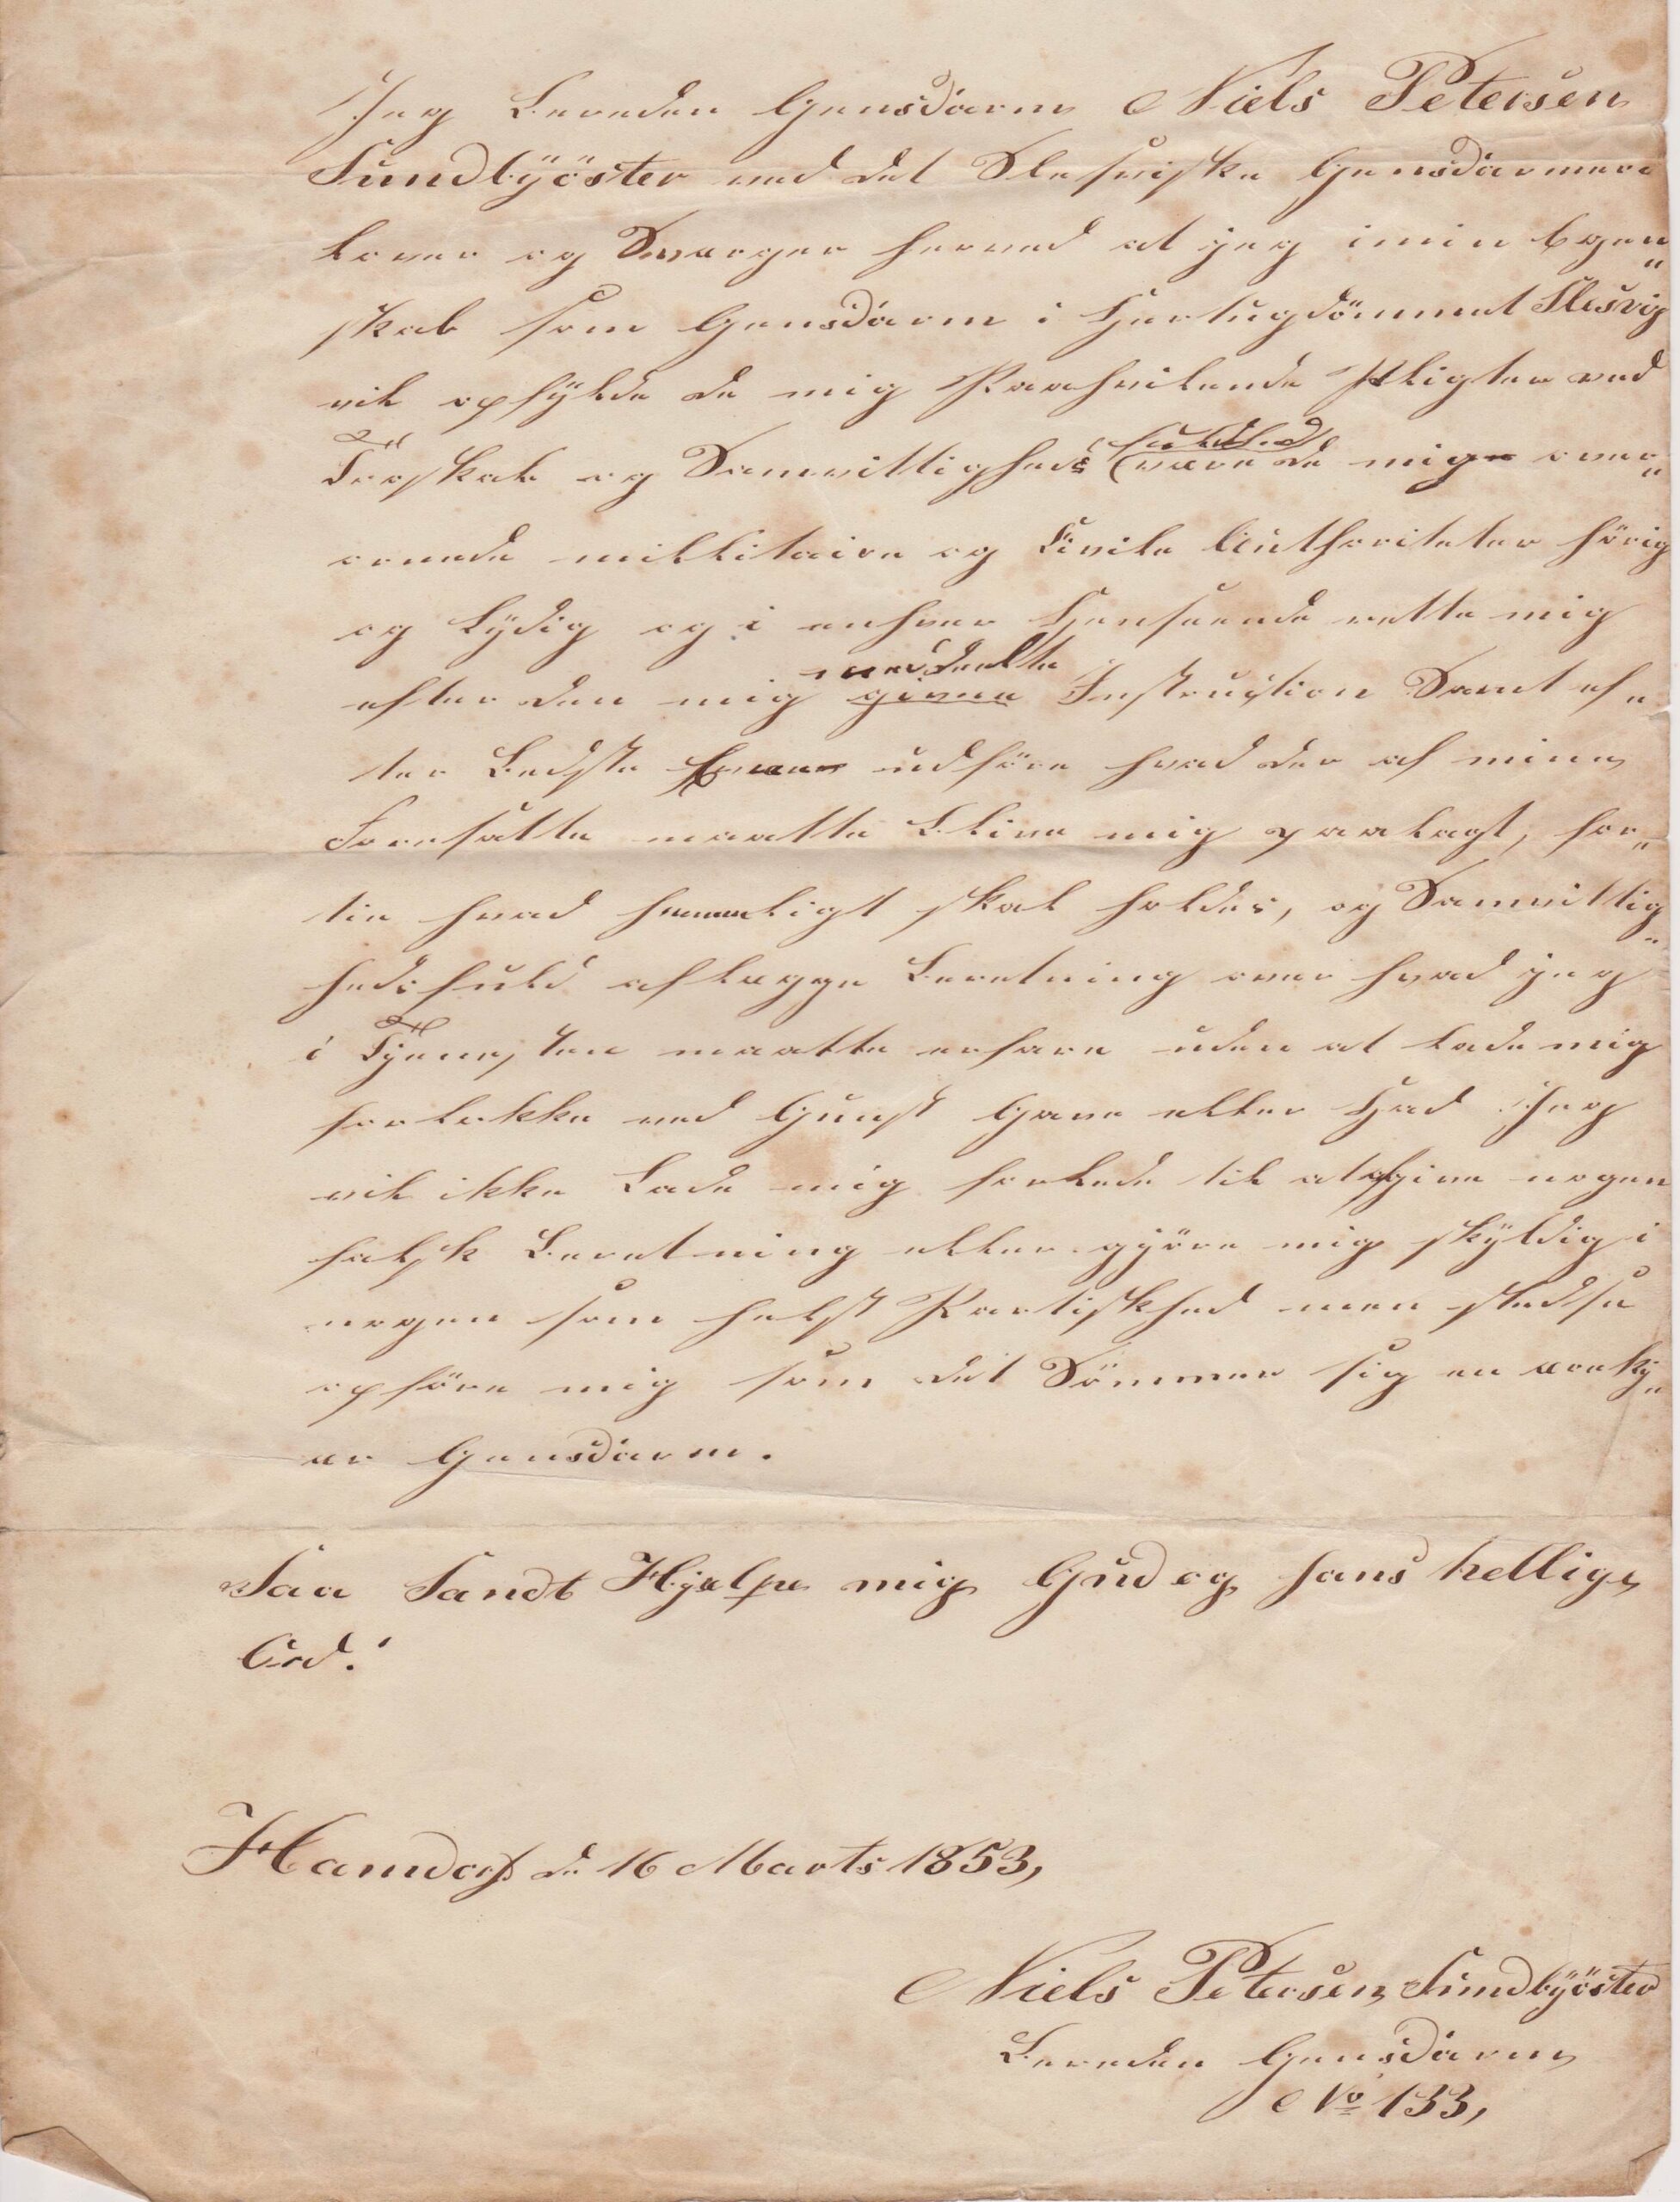 Jeg Bereden Gensdarm Niels Petersen
Sundbÿöster ved det Slesviske Gensdarmeri
lover og Sværger herved at jeg i min Egen„
skab som Gensdarm i Hertugdömmet Slesvig
vil opfÿlde de mig Paahvilende Pligter med
Troskab og Samvittigheds fuldhed være de mig over„
ornede millitaire og Civile Authoriteter hörig
og Lÿdig og i enhver Henseende rette mig
efter den mig givne meddeelte Instruction Samt ef„
ter Bedste Evner udföre hvad der af mine
Foresatte maatte blive mig paalagt, for„
tie hvad hemmeligt skal holdes, og Samvittig„
hedsfuld aflægge Beretning over hvad jeg
i Tjenesten maatte erfare uden at lade mig
forlokke ved Gunst Gave eller Had Jeg
vil ikke Lade mig forlede til at afgive nogen
falsk Beretning eller gjöre mig skÿldig i
nogen som helst Partiskhed men stedse
opföre mig som det Sömmer sig en ærekj„
ær Gensdarm.
Saa Sandt Hjælpe mig Gud og hans hellige
Ord.'
Hamdorf d. 16 Marts 1853,
Niels Petersen Sundbÿöster
Bereden Gensdarm
No 133,